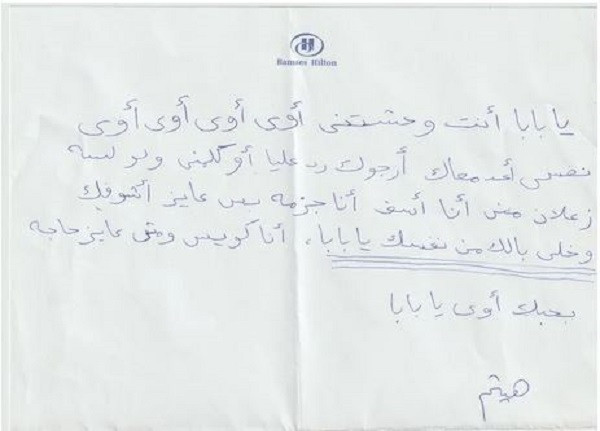 Ramses Hilton
يا بابا أنت وحشتنى أوى أوى أوى أوى
نفسى أقعد معاك أرجوك رد عليا أو كلمنى ولو لسه
زعلان منى أنا أسف أنا جزمه بس عايز أشوفك
وخلى بالك من نفسك يا بابا، أنا كويس ومش عايز حاجه
بحبك أوى يا بابا
هيثم